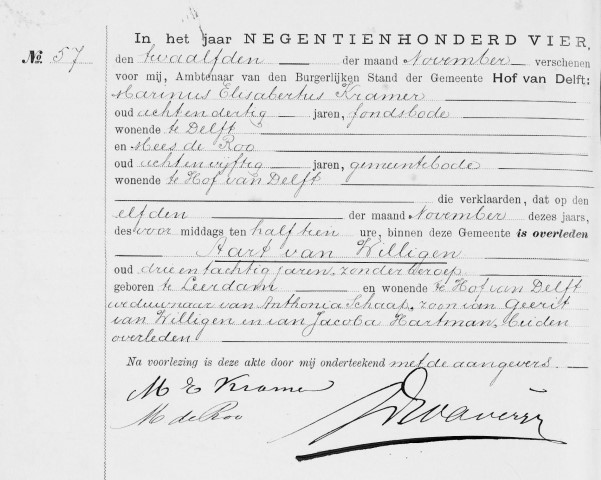 In het jaar NEGENTIENHONDERD VIER,
No. 57
den twaalfden der maand November verschenen
voor mij, Ambtenaar van den Burgerlijken Stand der Gemeente Hof van Delft:
Marinus Elisabertus Kramer
oud achtendertig jaren, fondsbode
wonende te Delft
en Mees de Roo
oud achtenvijftig jaren, gemeentebode
wonende te Hof van Delft
die verklaarden, dat op den
elfden der maand November dezes jaars,
des voor middags ten half tien ure, binnen deze Gemeente is overleden
Aart van Willigen
oud drieentachtig jaren, zonder beroep
geboren te Leerdam en wonende te Hof van Delft
weduwnaar van Anthonia Schaap, zoon van Geerit
van Willigen en van Jacoba Hartman, beiden
overleden
Na voorlezing is deze akte door mij onderteekend met de aangevers.
M E Kramer
M de Roo